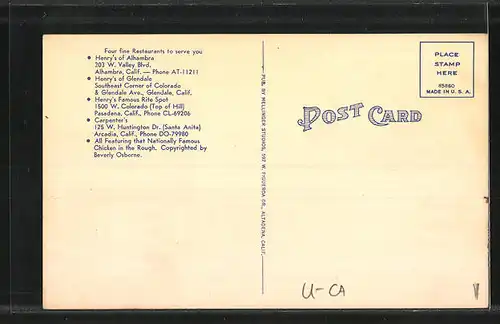 Four fine Restaurants to serve you
● Henry's of Alhambra
203 W. Valley Blvd.
Alhambra, Calif. — Phone AT-11211
● Henry's of Glendale
Southeast Corner of Colorado
& Glendale Ave., Glendale, Calif.
● Henry's Famous Rite Spot
1500 W. Colorado (Top of Hill)
Pasadena, Calif., Phone CL-69206
● Carpenter's
125 W. Huntington Dr. (Santa Anita)
Arcadia, Calif., Phone DO-79980
● All Featuring that Nationally Famous
Chicken in the Rough. Copyrighted by
Beverly Osborne.
PUB. BY MELLINGER STUDIOS, 597 W. FIGUEROA DR., ALTADENA, CALIF.
POST CARD
PLACE
STAMP
HERE
MADE IN U. S. A.
U-CA